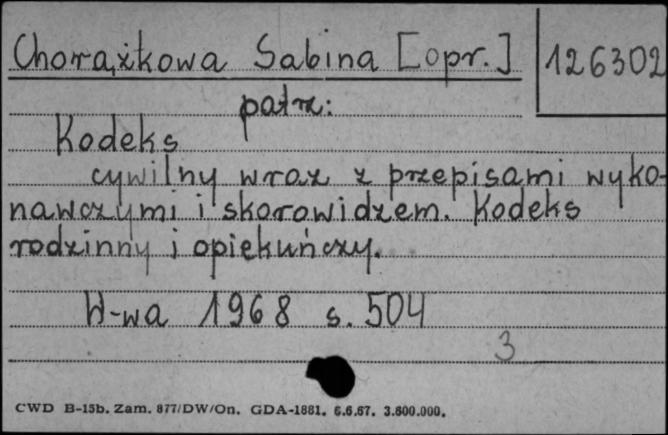 Chorążkowa Sabina [opr.] 126302
patrz:
Kodeks
cywilny wraz z przepisami wyko-
nawczymi i skorowidzem. Kodeks
rodzinny i opiekuńczy.
W-wa 1968 s. 504
3
CWD B-15b. Zam. 877/DW/On. GDA-1881. 6.6.67. 3.600.000.